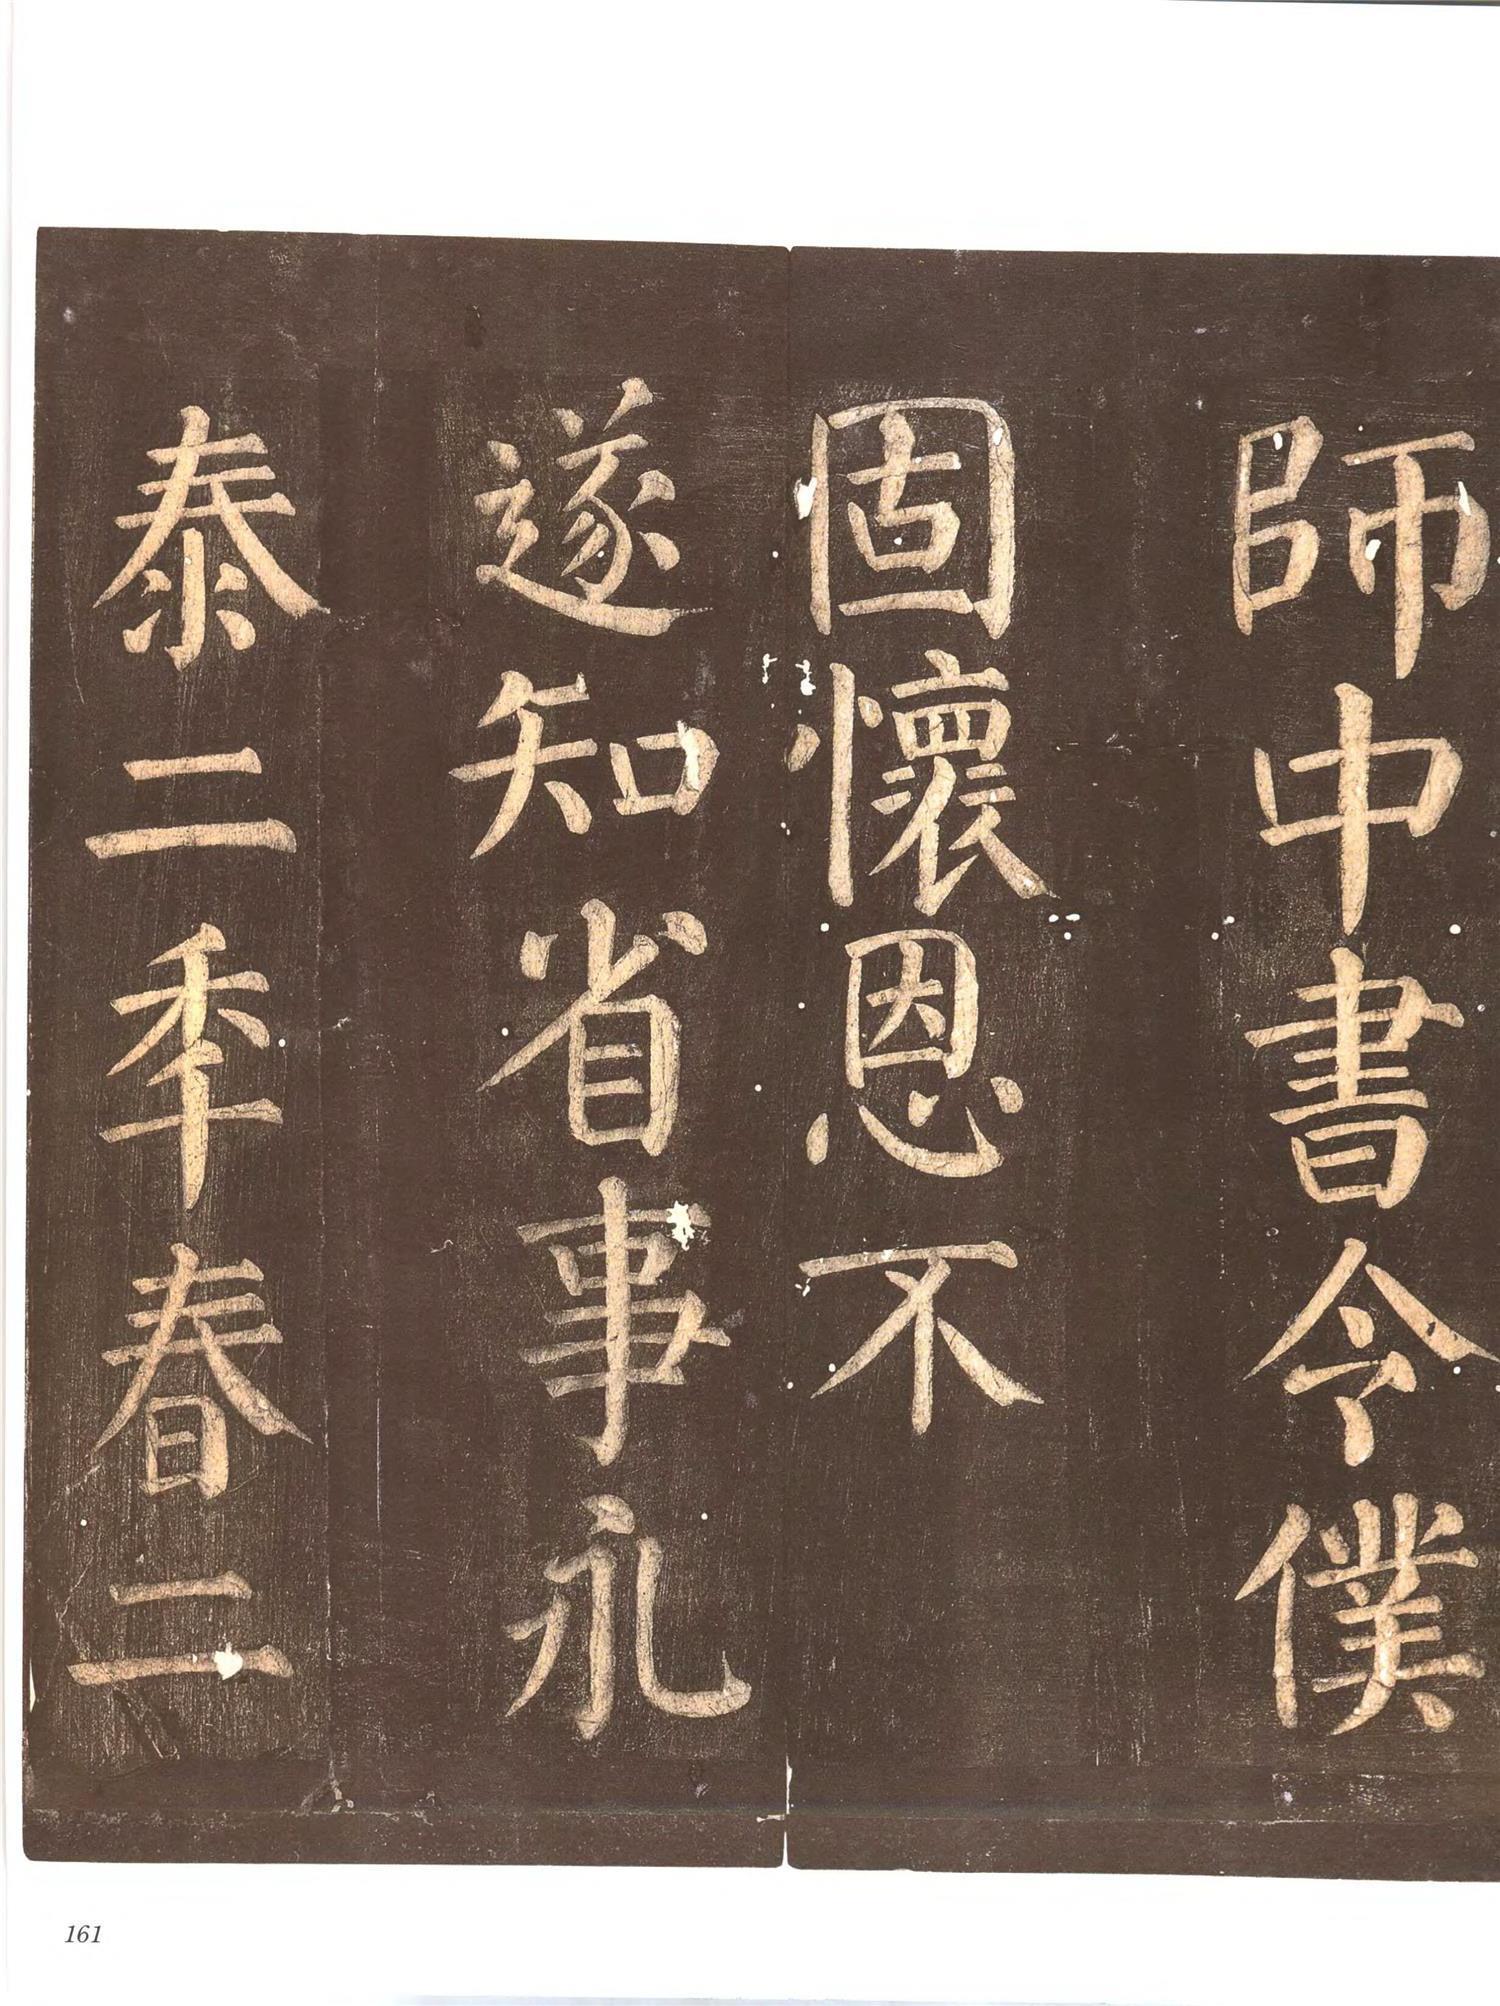 師中書令僕
固懷恩不
遂知省事永
泰二秊春二
161